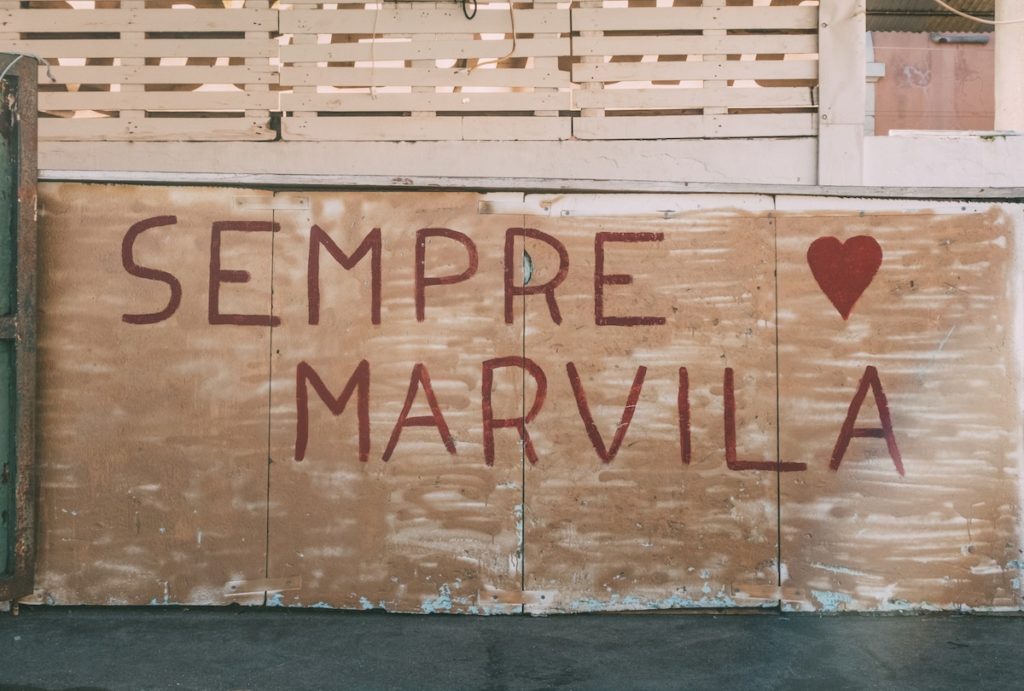 SEMPRE ♥
MARVILA